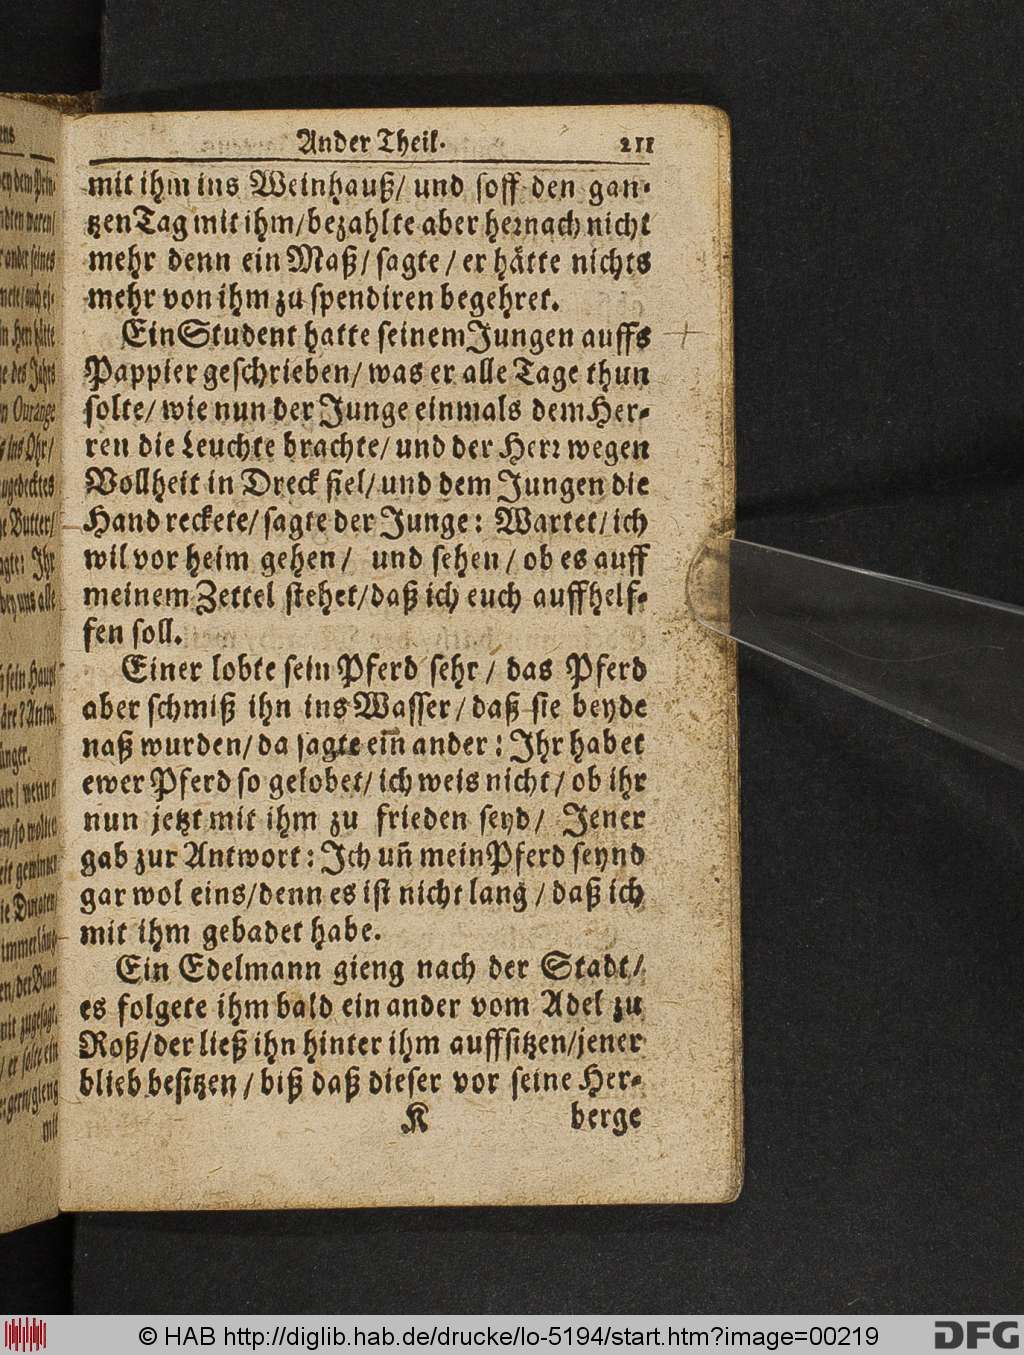 Ander Theil. 211
mit ihm ins Weinhauß/ und soff den gan-
tzen Tag mit ihm/ bezahlte aber hernach nicht
mehr denn ein Maß/ sagte/ er hätte nichts
mehr von ihm zu spendiren begehret.
Ein Student hatte seinem Jungen auffs
Pappier geschrieben/ was er alle Tage thun
solte/ wie nun der Junge einmals dem Her-
ren die Leuchte brachte/ und der Herr wegen
Vollheit in Dreck fiel/ und dem Jungen die
Hand reckete/ sagte der Junge: Wartet/ ich
wil vor heim gehen/ und sehen/ ob es auff
meinem Zettel stehet/ daß ich euch auffhelf-
fen soll.
Einer lobte sein Pferd sehr/ das Pferd
aber schmiß ihn ins Wasser/ daß sie beyde
naß wurden/ da sagte ein ander: Ihr habet
ewer Pferd so gelobet/ ich weis nicht/ ob ihr
nun jetzt mit ihm zu frieden seyd/ Jener
gab zur Antwort: Ich uñ mein Pferd seynd
gar wol eins/ denn es ist nicht lang/ daß ich
mit ihm gebadet habe.
Ein Edelmann gieng nach der Stadt/
es folgete ihm bald ein ander vom Adel zu
Roß/ der ließ ihn hinter ihm auffsitzen/ jener
blieb besitzen/ biß daß dieser vor seine Her-
K berge
© HAB http://diglib.hab.de/drucke/lo-5194/start.htm?image=00219
DFG